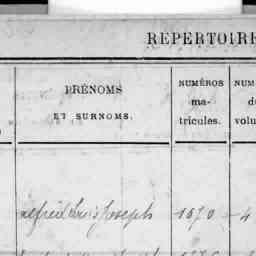 REPERTOIRE
PRÉNOMS
ET SURNOMS.
NUMÉROS
ma-
tricules.
NUM
d
volu
Joseph 1870 4